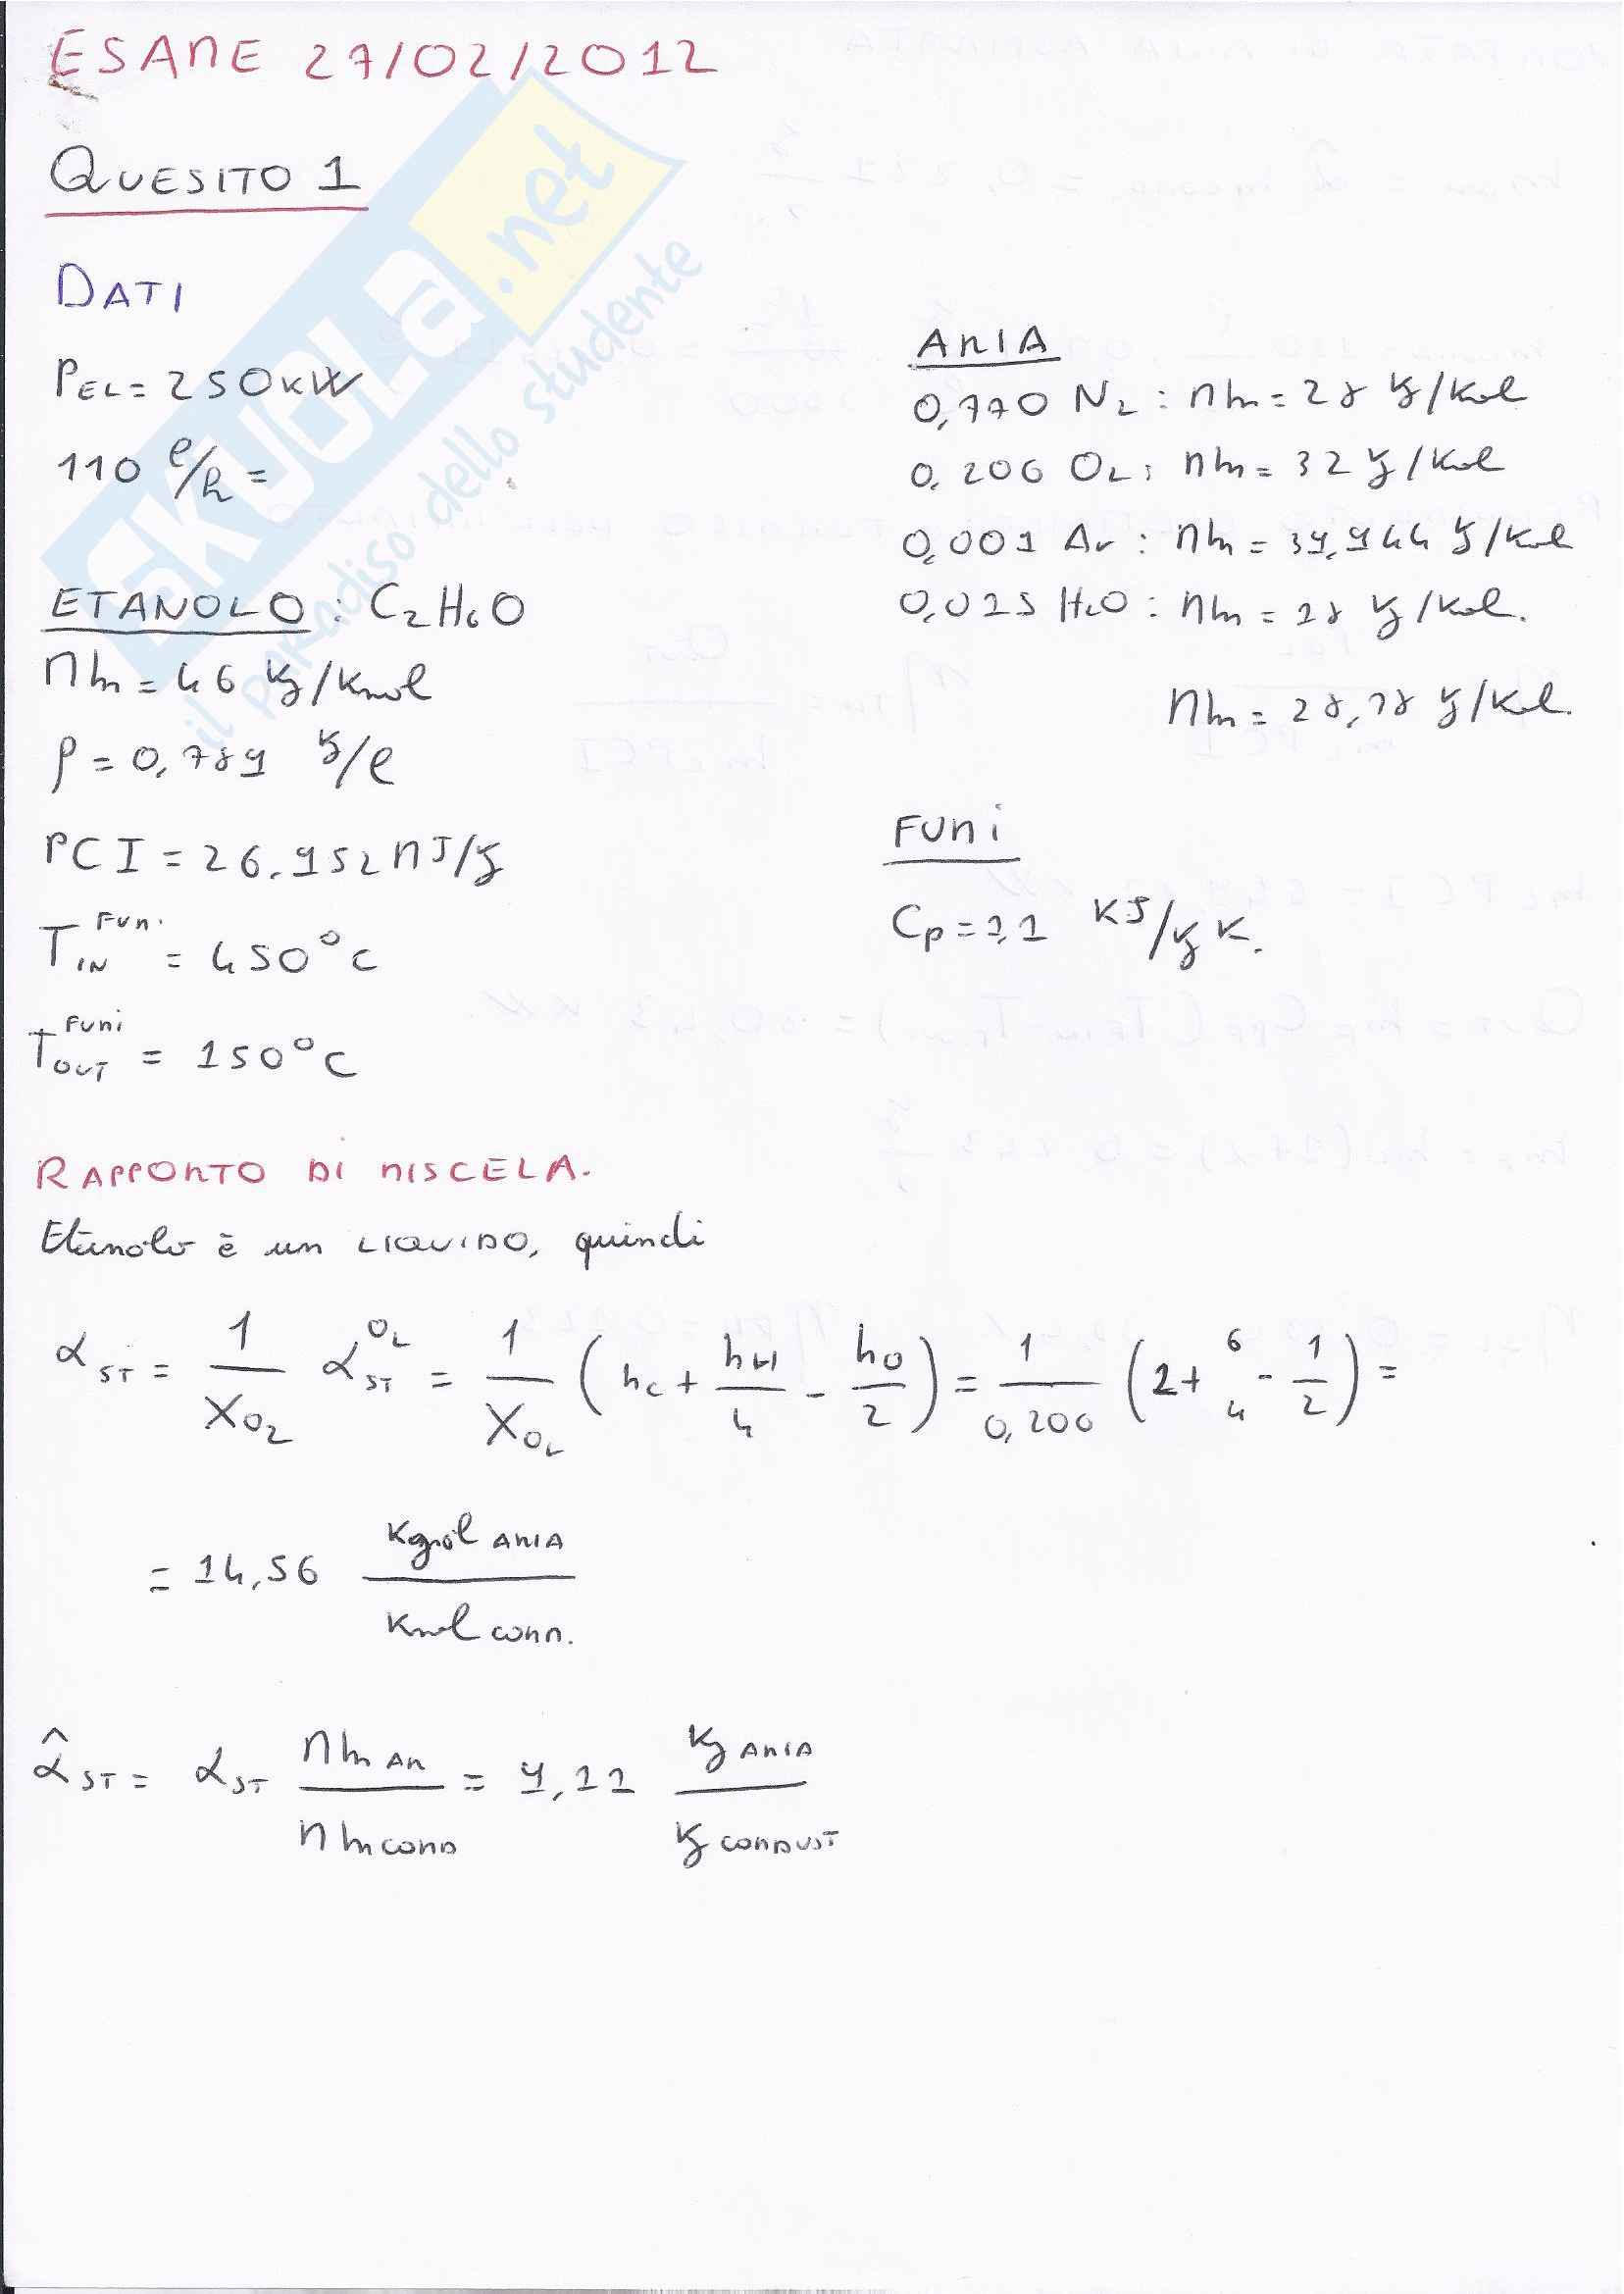 ESAME 27/02/2012
QUESITO 1
DATI
PEL = 250 kW
110 l/h =
ETANOLO : C2H6O
Mm = 46 kg/kmol
ρ = 0,789 kg/l
PCI = 26,952 MJ/kg
T IN FUMI = 450°C
T OUT FUMI = 150°C
ARIA
0,770 N2 : Mm = 28 kg/kmol
0,206 O2 : Mm = 32 kg/kmol
0,001 Ar : Mm = 39,944 kg/kmol
0,025 H2O : Mm = 18 kg/kmol.
Mm = 28,78 kg/kmol.
FUMI
Cp = 1,1 kJ/kg K.
RAPPORTO DI MISCELA.
Etanolo è un LIQUIDO, quindi
αST = 1/XO2 αST O2 = 1/XO2 (nC + nH/4 - nO/2) = 1/0,206 (2 + 6/4 - 1/2) =
= 14,56 kgmol ARIA / kmol COMB.
α̂ST = αST Mm AR / Mm COMB = 9,11 kg ARIA / kg COMBUST
SKUOLA.net
il paradiso dello studente